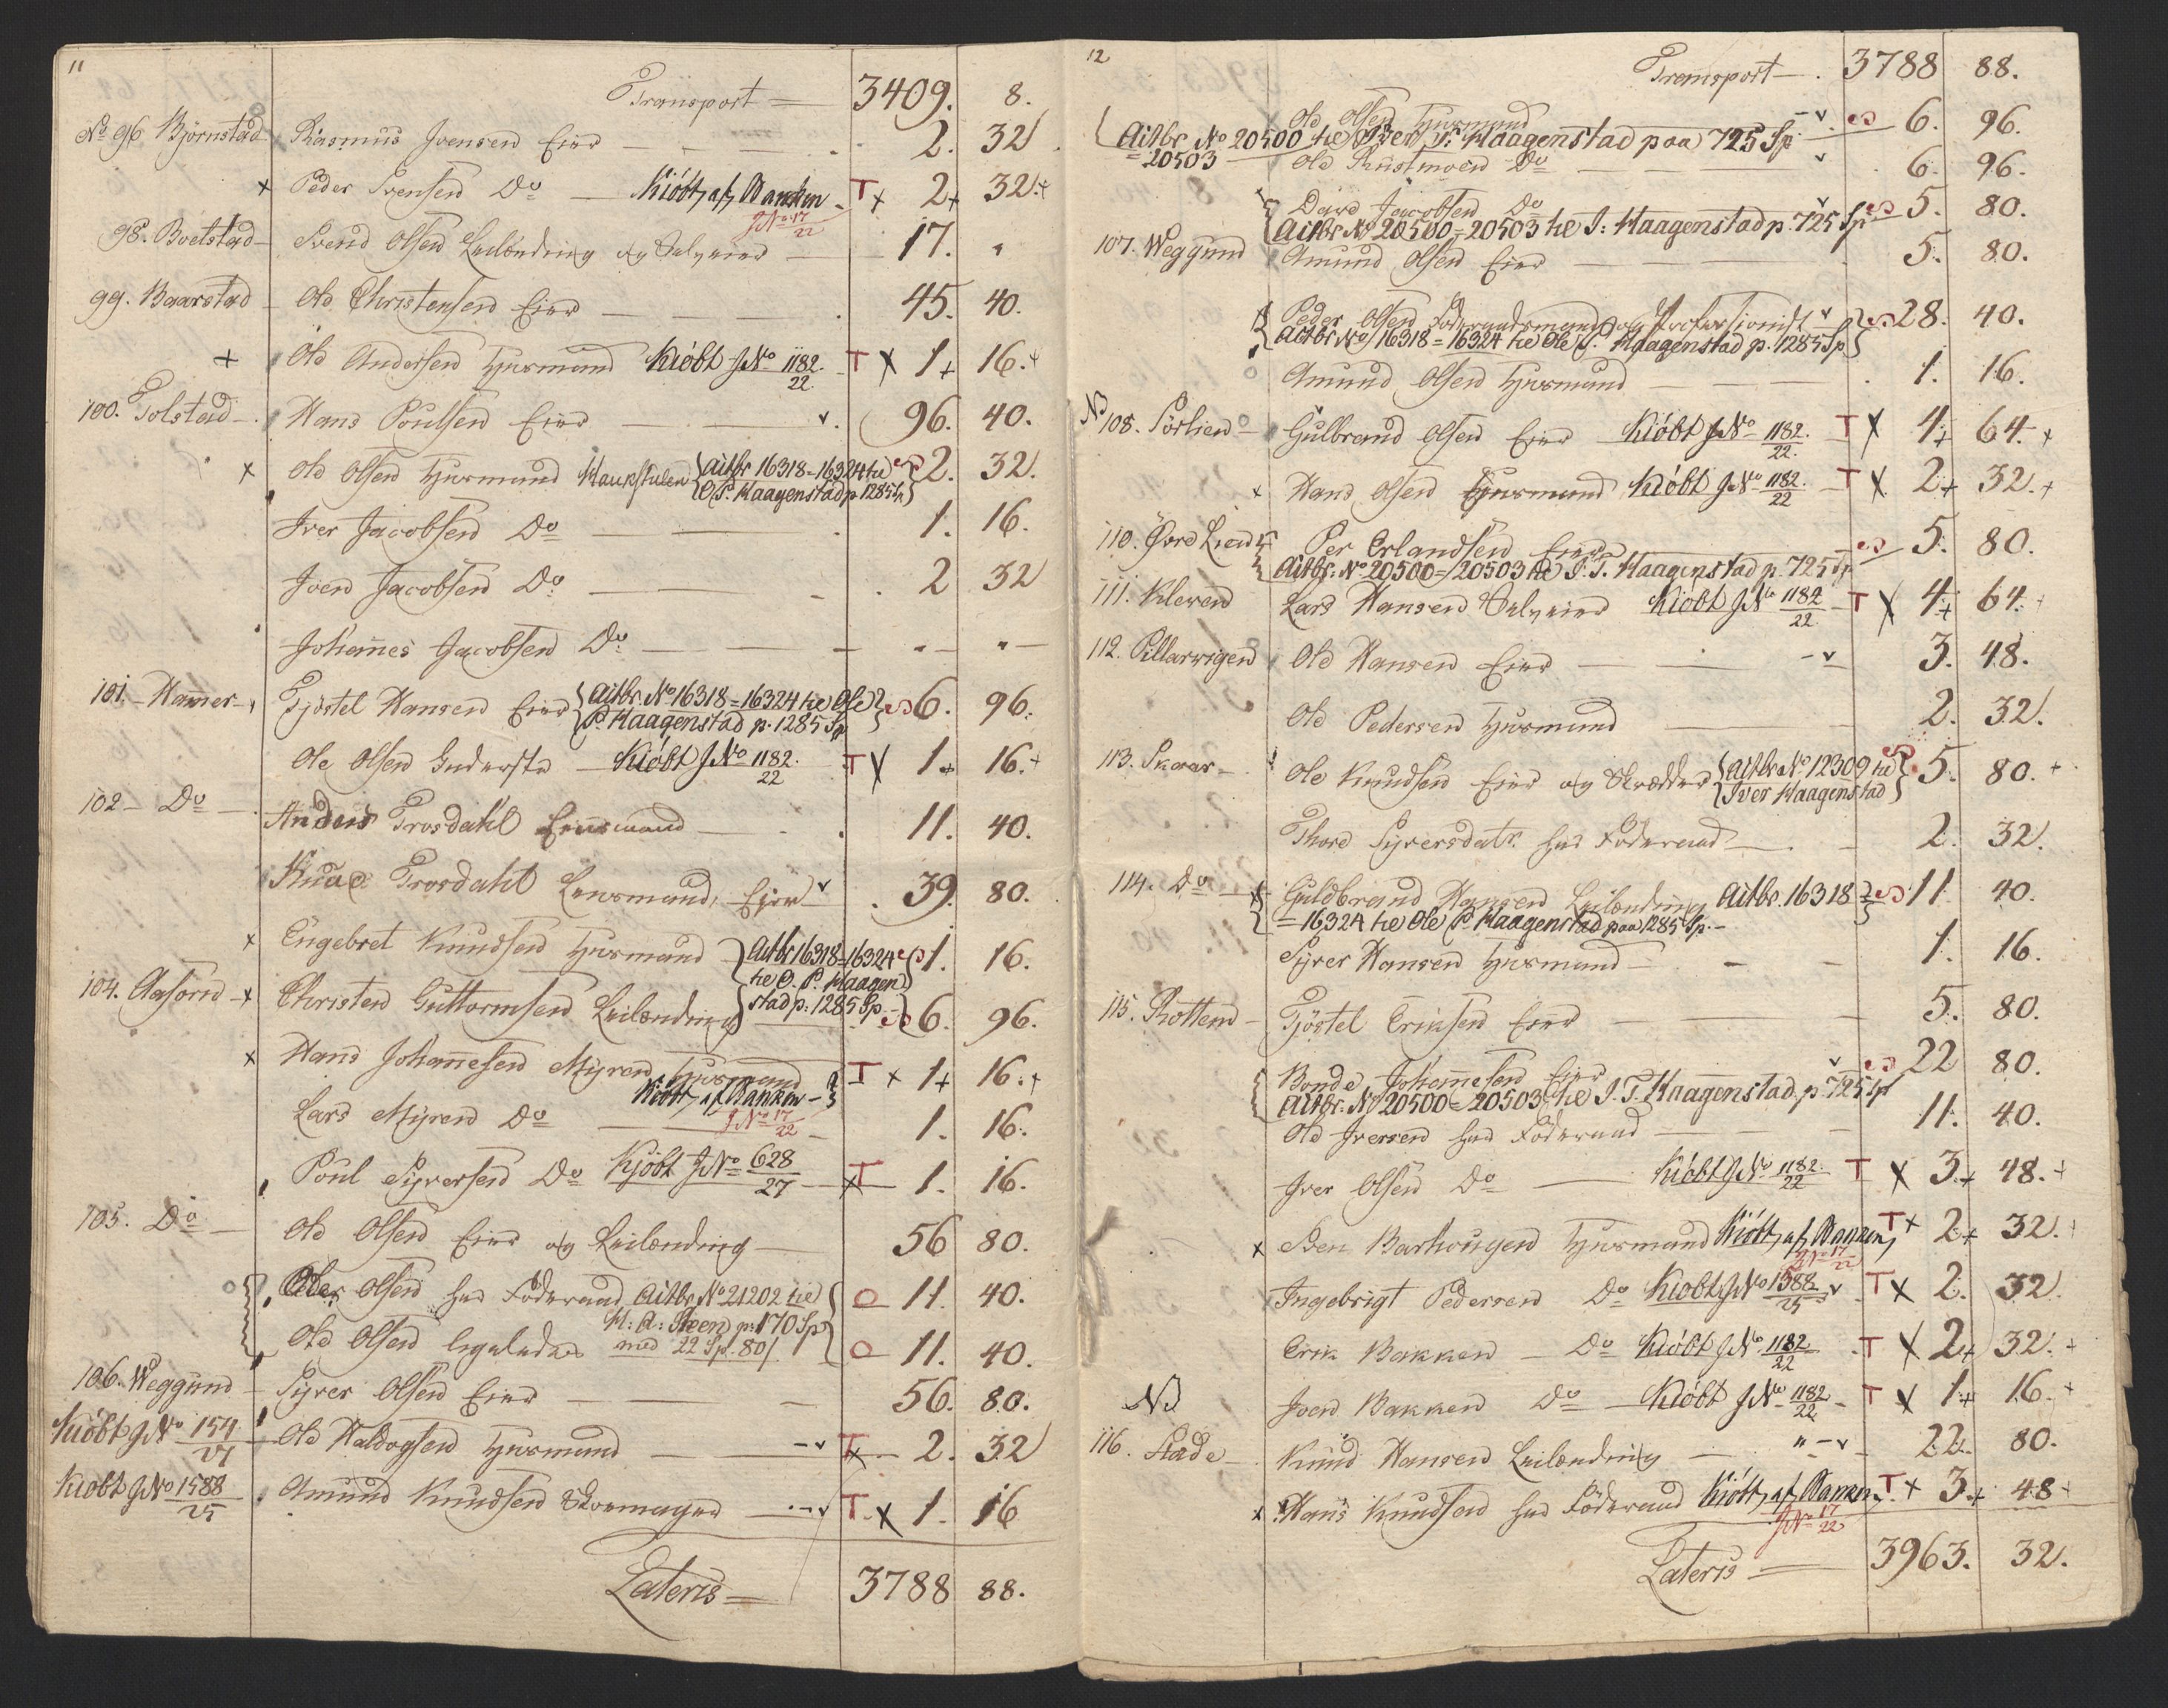 11
Transport = 3409. 8.
No 96 Björnstad Rasmus Ivensen Eier 2. 32
x Peder Svensen Do Kiöbt af Banken T x 2+ 32.+
JNo 17/22
98. Boetstad Svend Olsen Leilænding og Selveier 17. "
99. Baarstad Ole Christensen Eier 45. 40.
+ Ole Andersen Huusmand Kiöbt JNo 1182/22 T x 1+ 16.+
100. Tolstad Hans Poulsen Eier v. 96. 40.
x Ole Olsen Huusmand Haukstulen {Aitbr 16318=16324 til 2. 32.
O. P. Haagenstad p. 1285 Sp}
Iver Jacobsen Do 1. 16.
Joen Jacobsen Do 2 32
Johannes Jacobsen Do " "
101. Hammer Tjöstel Hansen Eier {Aitbr. No 16318=16324 til Ole 6. 96.
P. Haagenstad p. 1285 Sp}
Ole Olsen Inderste Kiöbt JNo 1182/22 T x 1+ 16.+
102 Do Anders Trosdahl 11. 40.
Knud Trosdahl Lensmand, Eier v 39. 80.
x Engebret Knudsen Huusmand {Aitbr 16318=16324 1. 16.
til O. P. Haagen
104. Aasoren x Christen Guttormsen Leilænding stad p: 1285 Sp. 6. 96.
x Hans Johannesen Myren Huusmand T x 1+ 16.+
Kiöbt af Banken
Lars Myren Do JNo 17/22 1. 16.
Poul Syversen Do Kjöbt JNo 628/27 x T 1. 16.
105. Do Ole Olsen Eier og Leilænding 56 80.
Peder Olsen har Föderaad Aitbr No 21202 til O 11. 40.
H: A: Steen p: 170 Sp
Ole Olsen ligeledes med 22 Sp. 80/ O 11. 40.
106. Weggund Syver Olsen Eier 56. 80.
Kiöbt JNo 154/27 Ole Haldogsen Huusmand v T x 2. 32
Kiöbt JNo 1588/25 Amund Knudsen Skomager v T. x 1. 16
Lateris = 3788 88.
12
Transport 3788 88.
Ole Olsen Huusmand v. 6. 96.
Aitbr No 20500 til Iver T: Haagenstad paa 725 Sp
=20503 Ole Rustmoen Do v 6. 96.
David Jacobsen Do v 5. 80.
Aitbr No 20500=20503 til I: Haagenstad p. 725 Sp
107. Weggund Amund Olsen Eier 5. 80.
Peder Olsen Föderaadsmand og Professionist v 28. 40.
Aitbr No 16318=16324 til Ole P. Haagenstad p. 1285 Sp
Amund Olsen Huusmand 1. 16.
No 108. Sörlien Gulbrand Olsen Eier Kiöbt JNo 1182/22 T x 4+ 64.+
x Hans Olsen Huusmand Kiöbt JNo 1182/22 T x 2+ 32.+
110. Övre Lien Per Erlandsen Eier 5. 80.
Aitbr. No 20500=20503 til I. T. Haagenstad p. 725 Sp
111. Kleven Lars Hansen Selveier Kiöbt JNo 1182/22 T x 4+ 64.+
112. Pillarvigen Ole Hansen Eier v 3. 48.
Ole Pedersen Huusmand 2. 32.
113. Skaar Ole Knudsen Eier og Skrædder {Aitbr No 12309 til 5. 80.+
Iver Haagenstad}
Thore Syversdatr. har Föderaad 2. 32.
114. Do x Guldbrand Hansen Leilænding Aitbr. 16318 11 40.
=16324 til Ole P. Haagenstad paa 1285 Sp.
Syver Hansen Huusmand 1. 16.
115. Rotten Tjöstel Eriksen Eier 5. 80.
Bonde Johannesen Eier v 22 80.
Aitbr. No 20500=20503 til I. T. Haagenstad p. 725 Sp
Ole Iversen har Föderaad 11. 40.
Iver Olsen Do Kiöbt JNo 1182/22 T x 3+ 48.+
x Sven Barhougen Huusmand Kiöbt af Banken T x 2+ 32.+
JNo 17/22
Ingebrigt Pedersen Do Kiöbt JNo 1588/25 v T x 2. 32.
Erik Bakken Do Kiöbt JNo 1182/22 T x 2+ 32.+
NB Joen Bakken Do Kiöbt JNo 1182/22 T x 1+ 16.+
116. Stade Knud Hansen Leilænding " v 22. 80.
x Hans Knudsen har Föderaad Kiöbt af Banken T x 3+ 48+
JNo 17/22
Lateris 3963. 32.